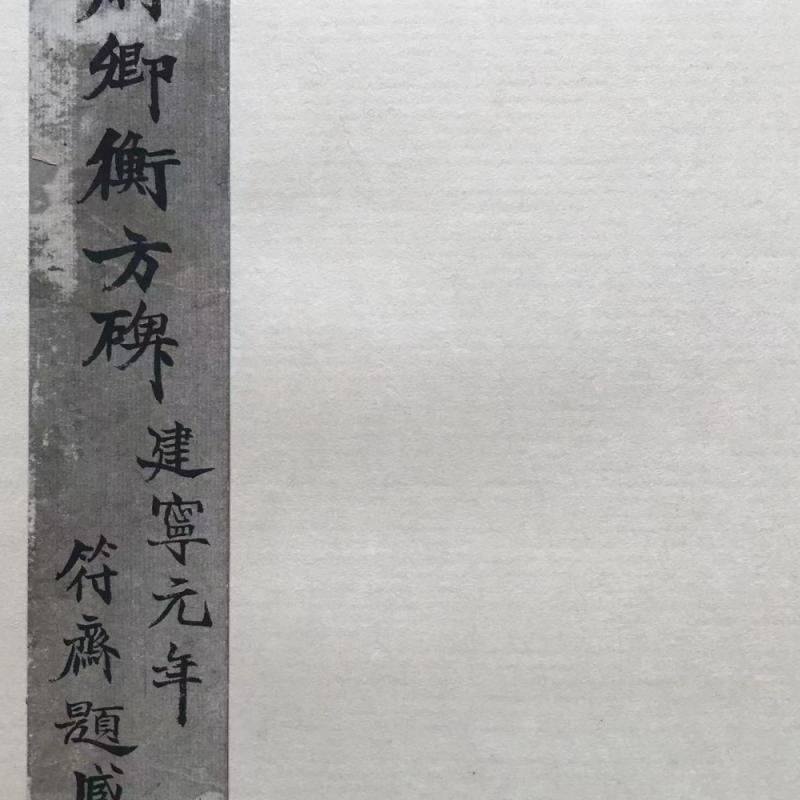 卿衡方碑
建寧元年
符齋題